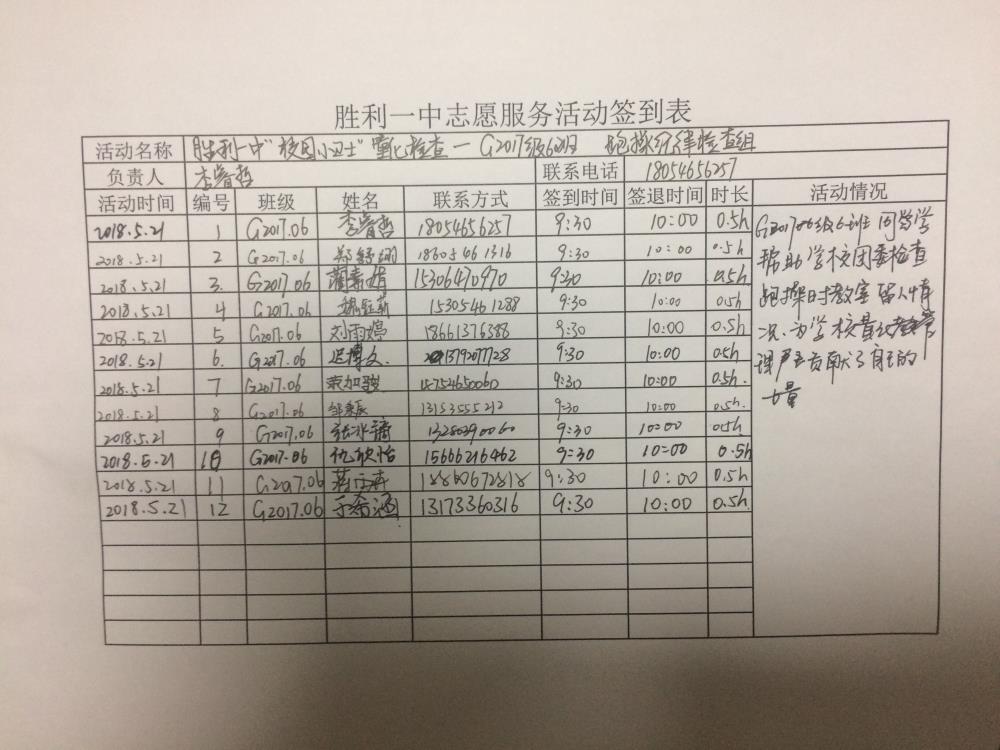 胜利一中志愿服务活动签到表
活动名称 胜利一中"校园小卫士"量化检查一G2017级6班 跑操纪律检查组
负责人 李睿哲 联系电话 18054656257
活动时间 编号 班级 姓名 联系方式 签到时间 签退时间 时长 活动情况
2018.5.21 1 G2017.06 李睿哲 18054656257 9:30 10:00 0.5h
2018.5.21 2 G2017.06 18305461316 9:30 10:00 0.5h
2018.5.21 3. G2017.06 15306470970 9:30 10:00 0.5h
2018.5.21 4 G2017.06 15305461288 9:30 10:00 0.5h
2018.5.21 5 G2017.06 刘雨婷 18661376388 9:30 10:00 0.5h
2018.5.21 6. G2017.06 13792077728 9:30 10:00 0.5h
2018.5.21 7 G2017.06 147524650060 9:30 10:00 0.5h.
2018.5.21 8 G2017.06 13153555212 9:30 10:00 0.5h.
2018.5.21 9 G2017.06 13280390060 9:30 10:00 0.5h
2018.5.21 10 G2017.06 仇欣怡 15666216462 9:30 10:00 0.5h
2018.5.21 11 G2017.06 18860672818 9:30 10:00 0.5h
2018.5.21 12 G2017.06 于希涵 13173360316 9:30 10:00 0.5h
G201706级6班同学
帮助学校团委检查
跑操时教室留人情
况.为学校量化
贡献了自己的
力量